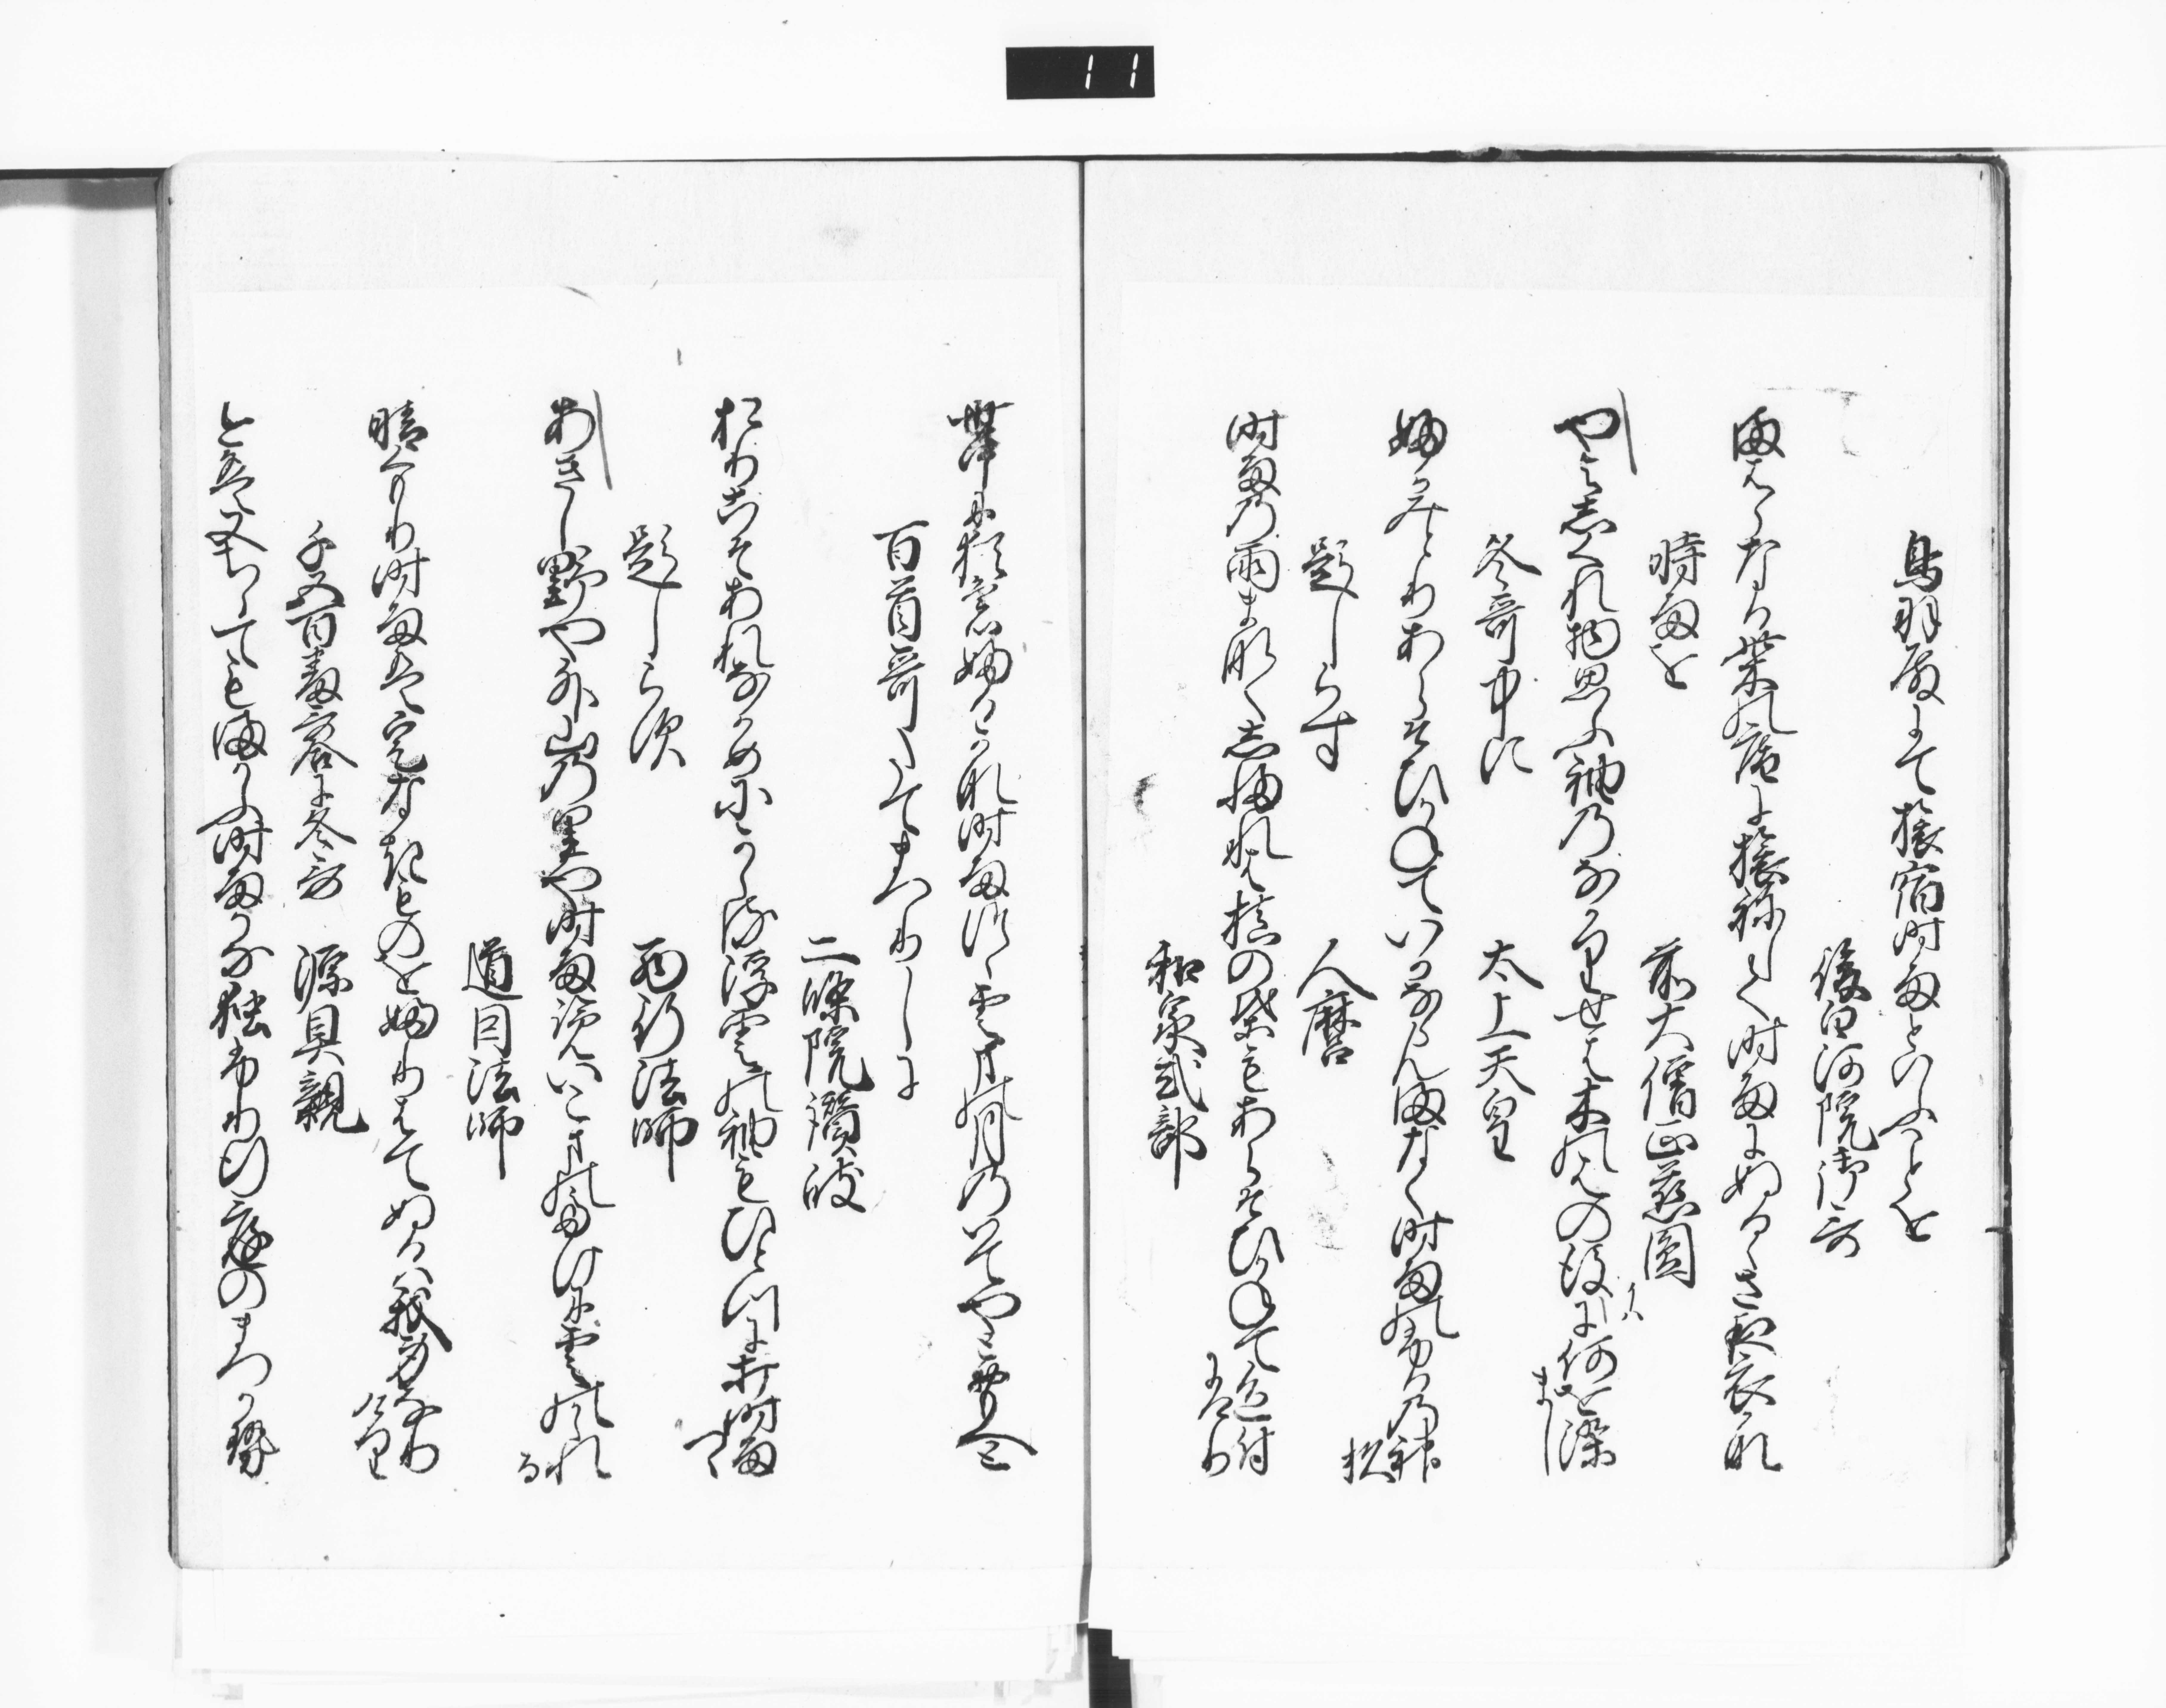 11
鳥羽殿にて旅宿時雨といふことを
後白河院御哥
まはらなる柴の庵に旅ねして時雨にぬるゝさ夜衣かな
時雨を
前大僧正慈圓
やよしくれ物思ふ袖のなかりせは木の葉の後に何を染
まし
冬哥中に
太上天皇
ふかみとりあらそひかねていかならんまなく時雨ふるの神
杉
題しらす
人麿
時雨の雨まなくしふれは槙の葉もあらそひかねて色付
にけり
和泉式部
世中に猶もふるかな時雨つゝ雲間の月のいてやと思へと
百首哥たてまつりしに
二條院讃岐
おりこそあれなかめにかゝる浮雲の袖もひとつに打時雨
つゝ
題しらす
西行法師
あきしのや外山の里や時雨らんいこまのたけに雲のかゝれ
る
道因法師
晴くもり時雨は定なき物をふりはてぬるは我身なり
けり
千五百番哥合に冬哥
源具親
今は又ちらてもまかふ時雨かなひとりふりゆく庭のまつかせ